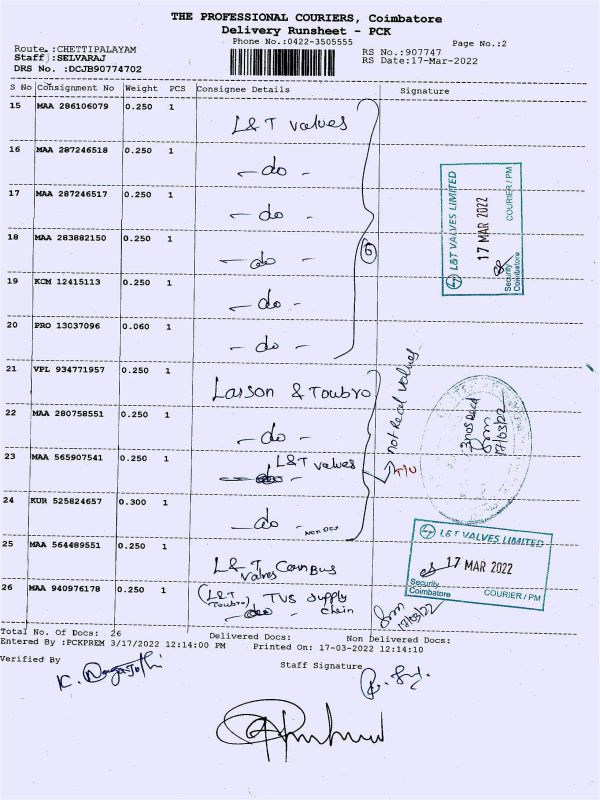 THE PROFESSIONAL COURIERS, Coimbatore
Delivery Runsheet - PCK
Phone No.:0422-3505555
Page No.:2
Route :CHETTIPALAYAM
RS No.:907747
Staff :SELVARAJ
RS Date:17-Mar-2022
DRS No. :DCJB90774702
S No Consignment No Weight PCS Consignee Details Signature
15 MAA 286106079 0.250 1 L&T Valves
16 MAA 287246518 0.250 1 - do -
17 MAA 287246517 0.250 1 - do -
18 MAA 283882150 0.250 1 - do -
19 KCM 12415113 0.250 1 - do -
20 PRO 13037096 0.060 1 - do -
6
L&T VALVES LIMITED
17 MAR 2022
Security
Coimbatore
COURIER / PM
21 VPL 934771957 0.250 1 Larson & Toubro
22 MAA 280758551 0.250 1 - do -
23 MAA 565907541 0.250 1 L&T Valves
24 KUR 525824657 0.300 1 - do -
NON DOX
Not Recd Valves
T/U
3nos Recd
17/03/22
25 MAA 564489551 0.250 1 L&T Valves
26 MAA 940976178 0.250 1 (L&T Toubro) TVS Supply chain
L&T VALVES LIMITED
17 MAR 2022
Security
Coimbatore
COURIER / PM
17/03/22
Total No. Of Docs: 26 Delivered Docs: Non Delivered Docs:
Entered By :PCKPREM 3/17/2022 12:14:00 PM Printed On: 17-03-2022 12:14:10
Verified By
Staff Signature